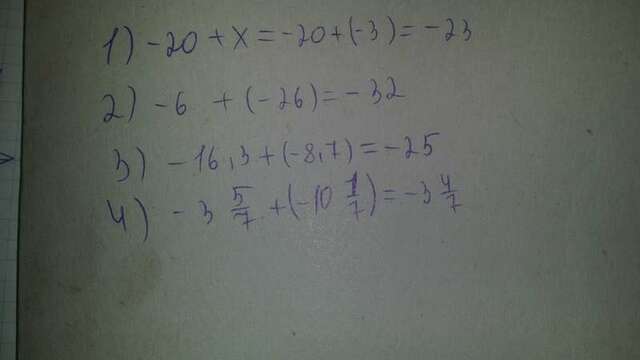 1) -20 + x = -20 + (-3) = -23
2) -6 + (-26) = -32
3) -16,3 + (-8,7) = -25
4) -3 5/7 + (-10 1/7) = -3 4/7